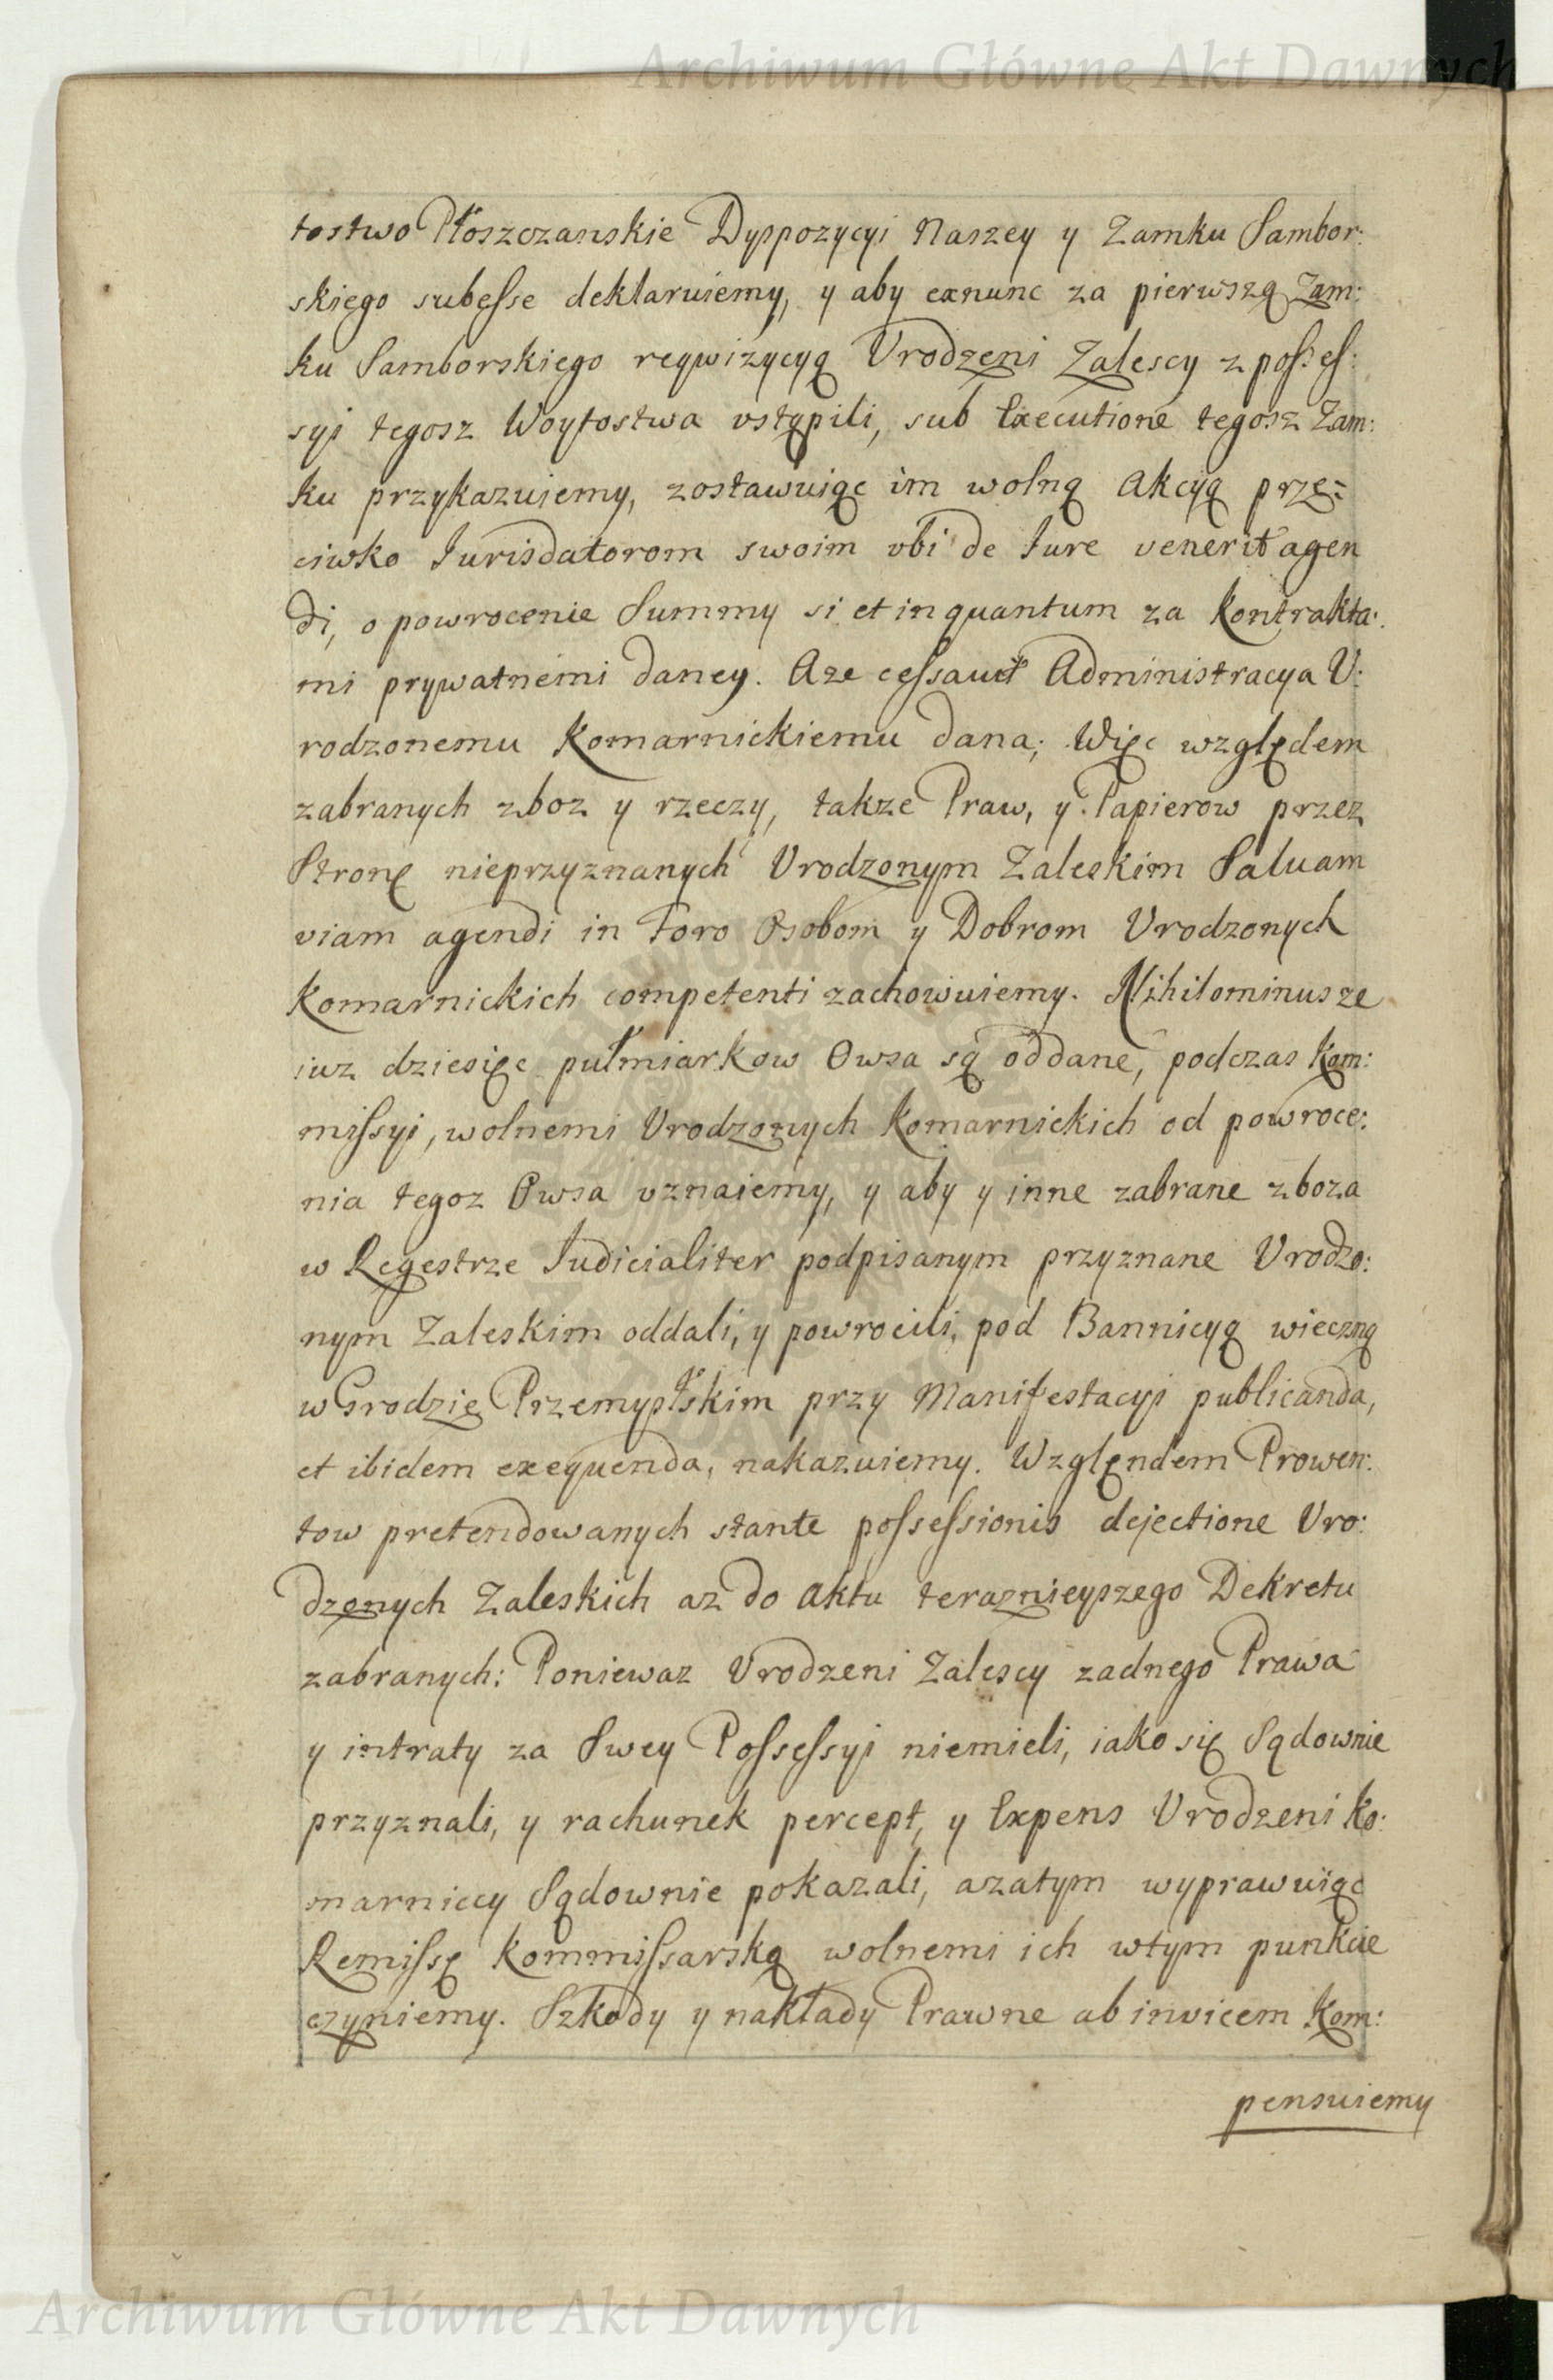 Archiwum Główne Akt Dawnych
tostwo Płoszczanskie Dyspozycyi Naszey y Zamku Sambor:
skiego subesse deklaruiemy, y aby exnunc za pierwszą Zam:
ku Samborskiego reqwizycyą Vrodzeni Zalescy z posses:
syi tegosz Woytostwa vstąpili, sub Executione tegosz Zam:
ku przykazuiemy, zostawuiąc im wolną Akcyą prze=
ciwko Jurisdatorom swoim vbi de Jure venerit agen
di, o powrocenie Summy si et in quantum za kontrakta:
mi prywatnemi daney. Aze cessavit Administracya V:
rodzonemu Komarnickiemu dana; Więc względem
zabranych zboz y rzeczy, takze Praw, y Papierow przez
Stronę nieprzyznanych Vrodzonym Zaleskim Saluam
viam agendi in Foro Osobom y Dobrom Vrodzonych
Komarnickich competenti zachowuiemy. Nihilominus ze
iuz dziesięc pułmiarkow Owsa są oddane, podczas Kom:
missyi, wolnemi Vrodzonych Komarnickich od powroce:
nia tegoz Owsa vznaiemy, y aby y inne zabrane zboza
w Regestrze Judicialiter podpisanym przyznane Vrodzo:
nym Zaleskim oddali, y powrocili, pod Bannicyą wieczną
w Grodzie Przemysłskim przy Manifestacyi publicanda,
et ibidem exequenda, nakazuiemy. Względem Prowen:
tow pretendowanych stante possessionis dejectione Vro:
dzonych Zaleskich az do aktu teraznieyszego Dekretu
zabranych: Poniewaz Vrodzeni Zalescy zadnego Prawa
y intraty za Swey Possessyi niemieli, iako się Sądownie
przyznali, y rachunek percept, y Expens Vrodzeni Ko:
marniccy Sądownie pokazali, azatym wyprawuiąc
Remissę Kommissarską wolnemi ich wtym punkcie
czyniemy. Szkody y nakłady Prawne ab invicem Kom:
pensuiemy
Archiwum Główne Akt Dawnych